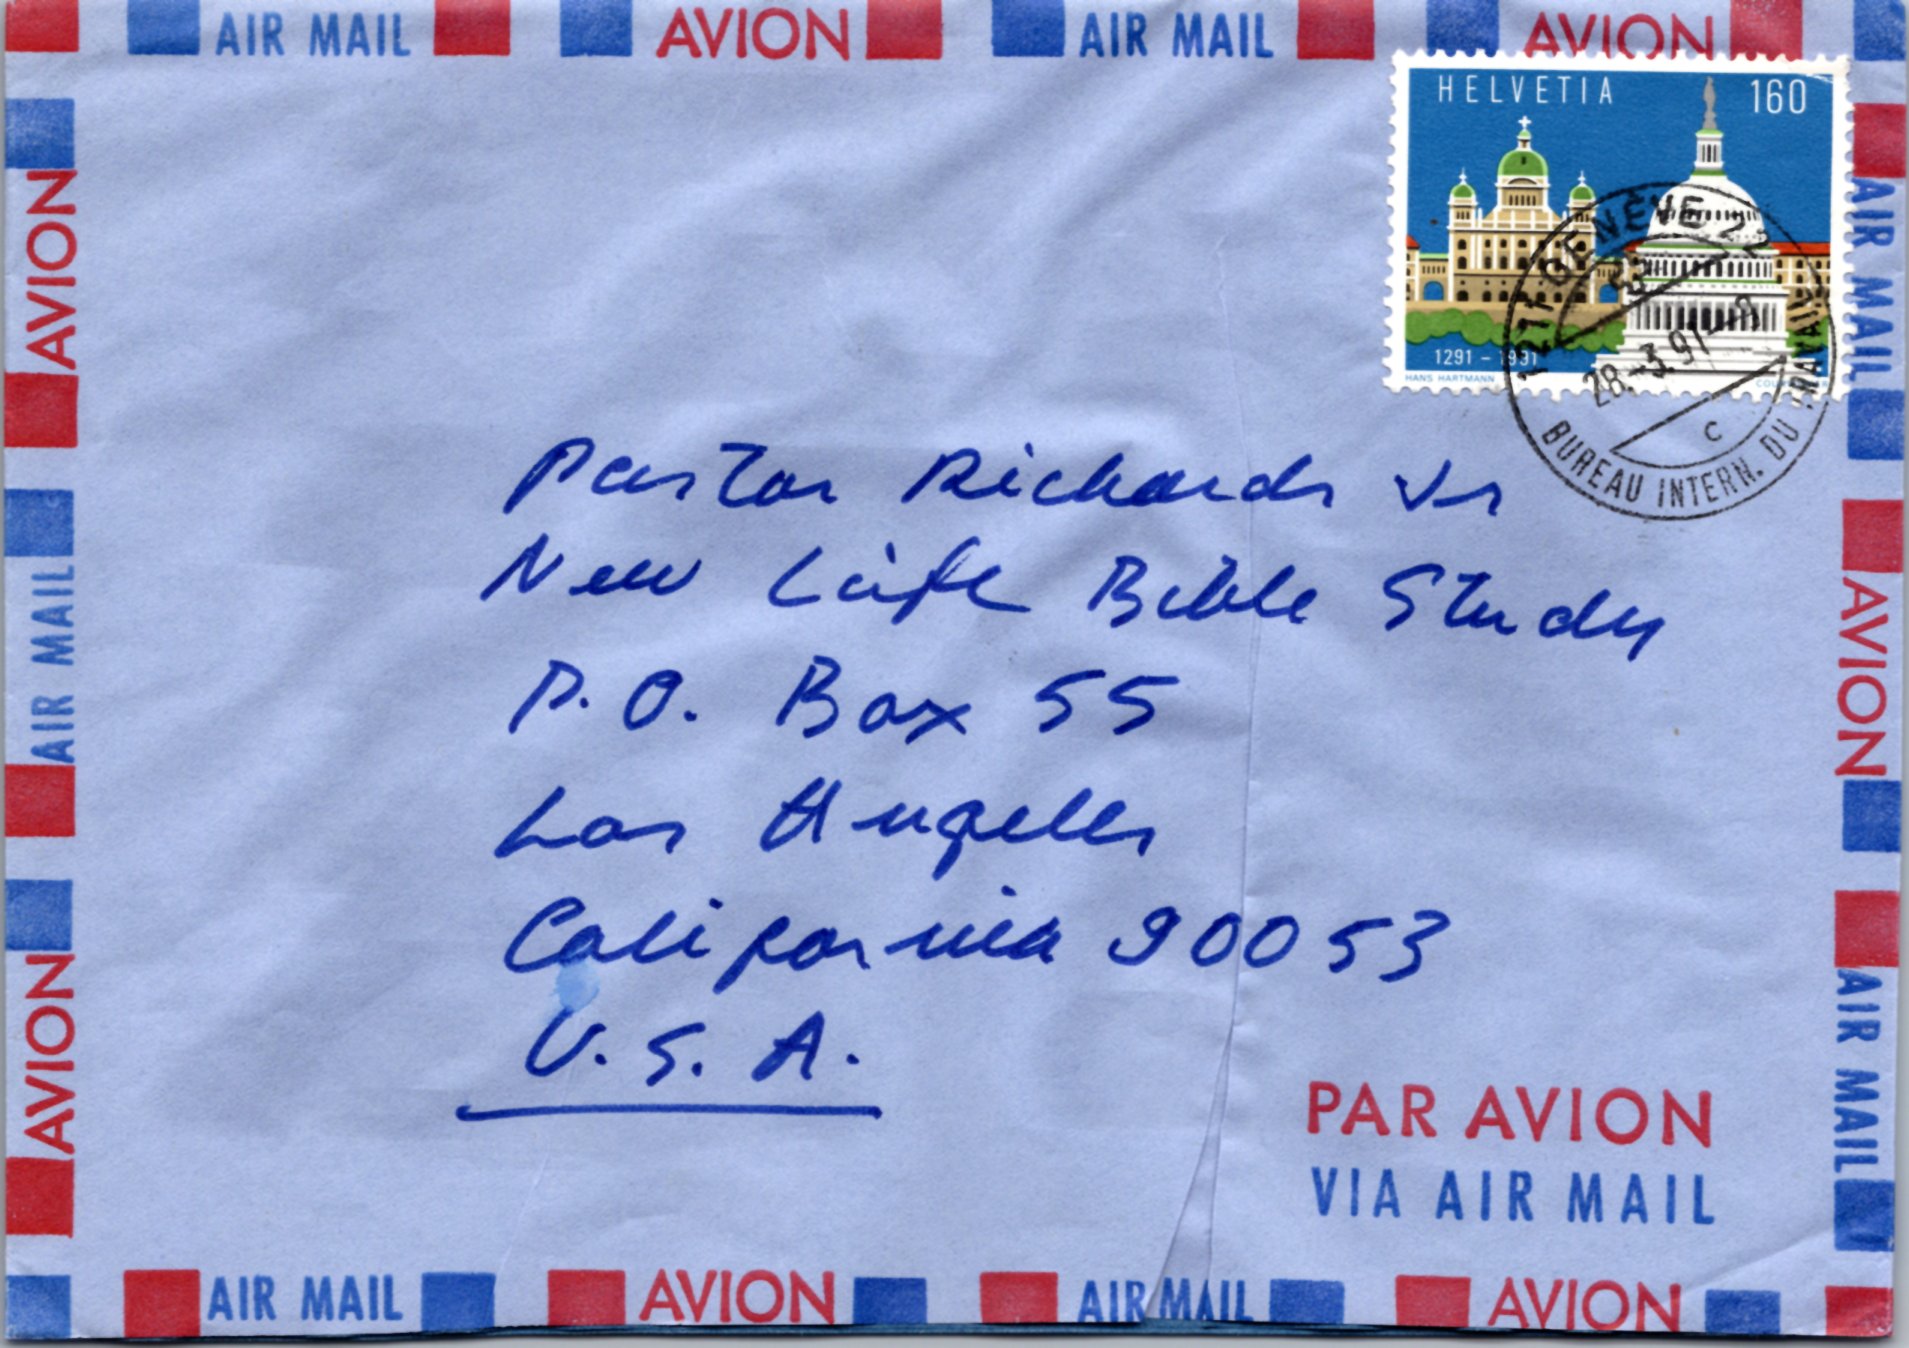 AIR MAIL AVION AIR MAIL AVION
HELVETIA 160
1291 - 1991
HANS HARTMANN
1211 GENÈVE 22
28.-3.91--9
C
BUREAU INTERN. DU TRAVAIL
Pastor Richards Jr
New Life Bible Study
P.O. Box 55
Los Angeles
California 90053
U.S.A.
PAR AVION
VIA AIR MAIL
AVION
AIR MAIL
AVION
AIR MAIL
AVION
AIR MAIL
AIR MAIL AVION AIR MAIL AVION